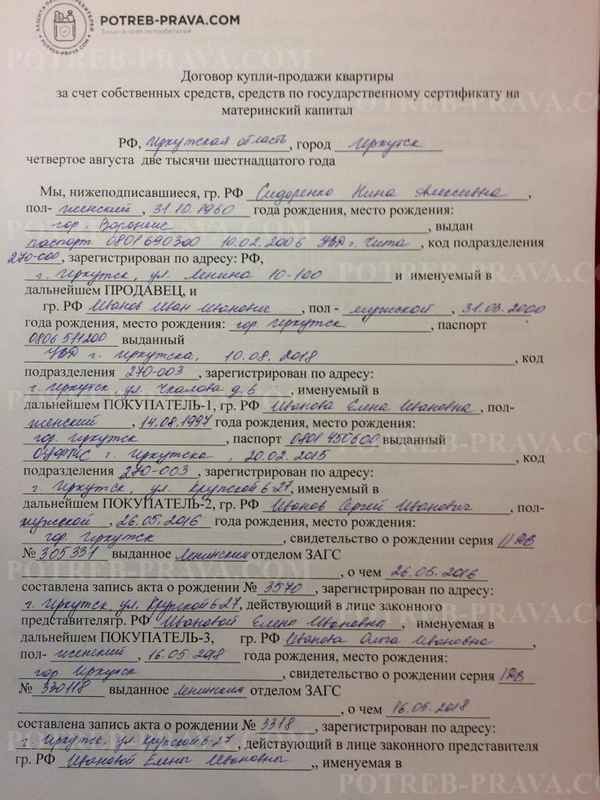 POTREB-PRAVA.COM
Договор купли-продажи квартиры
за счет собственных средств, средств по государственному сертификату на
материнский капитал
РФ, Иркутская область, город Иркутск
четвертое августа две тысячи шестнадцатого года
Мы, нижеподписавшиеся, гр. РФ Сидоренко Нина Алексеевна,
пол- женский, 31.10.1960 года рождения, место рождения:
гор. Воронеж, выдан
паспорт 0801 690300 10.02.2006 УВД г. Чита, код подразделения
270-000, зарегистрирован по адресу: РФ,
г. Иркутск, ул. Ленина 10-100 и именуемый в
дальнейшем ПРОДАВЕЦ, и
гр. РФ Иванов Иван Иванович, пол - мужской, 31.03.2000
года рождения, место рождения: гор. Иркутск, паспорт
0806 571200 выданный
УВД г. Иркутска, 10.08.2018, код
подразделения 270-003, зарегистрирован по адресу:
г. Иркутск, ул. Чкалова д. 6, именуемый в
дальнейшем ПОКУПАТЕЛЬ-1, гр. РФ Иванова Елена Ивановна, пол-
женский, 14.08.1997 года рождения, место рождения:
гор. Иркутск, паспорт 0801 450600 выданный
г. Иркутска, 20.02.2015, код
подразделения 270-003, зарегистрирован по адресу:
г. Иркутск, ул. Крупской 6-27, именуемый в
дальнейшем ПОКУПАТЕЛЬ-2, гр. РФ Иванов Сергей Иванович, пол-
мужской, 26.05.2016 года рождения, место рождения:
гор. Иркутск, свидетельство о рождении серия
№ 305331 выданное Ленинским отделом ЗАГС
, о чем 26.05.2016
составлена запись акта о рождении № 3570, зарегистрирован по адресу:
г. Иркутск, ул. Крупской 6-27, действующий в лице законного
представителягр. РФ Ивановой Елены Ивановны, именуемая в
дальнейшем ПОКУПАТЕЛЬ-3, гр. РФ Иванова Ольга Ивановна,
пол- женский, 16.05.2018 года рождения, место рождения:
гор Иркутск, свидетельство о рождении серия
№ 330118 выданное Ленинским отделом ЗАГС
, о чем 16.05.2018
составлена запись акта о рождении № 3318, зарегистрирован по адресу:
г. Иркутск, ул. Крупской 6-27, действующий в лице законного представителя
гр. РФ Ивановой Елены Ивановны,, именуемая в